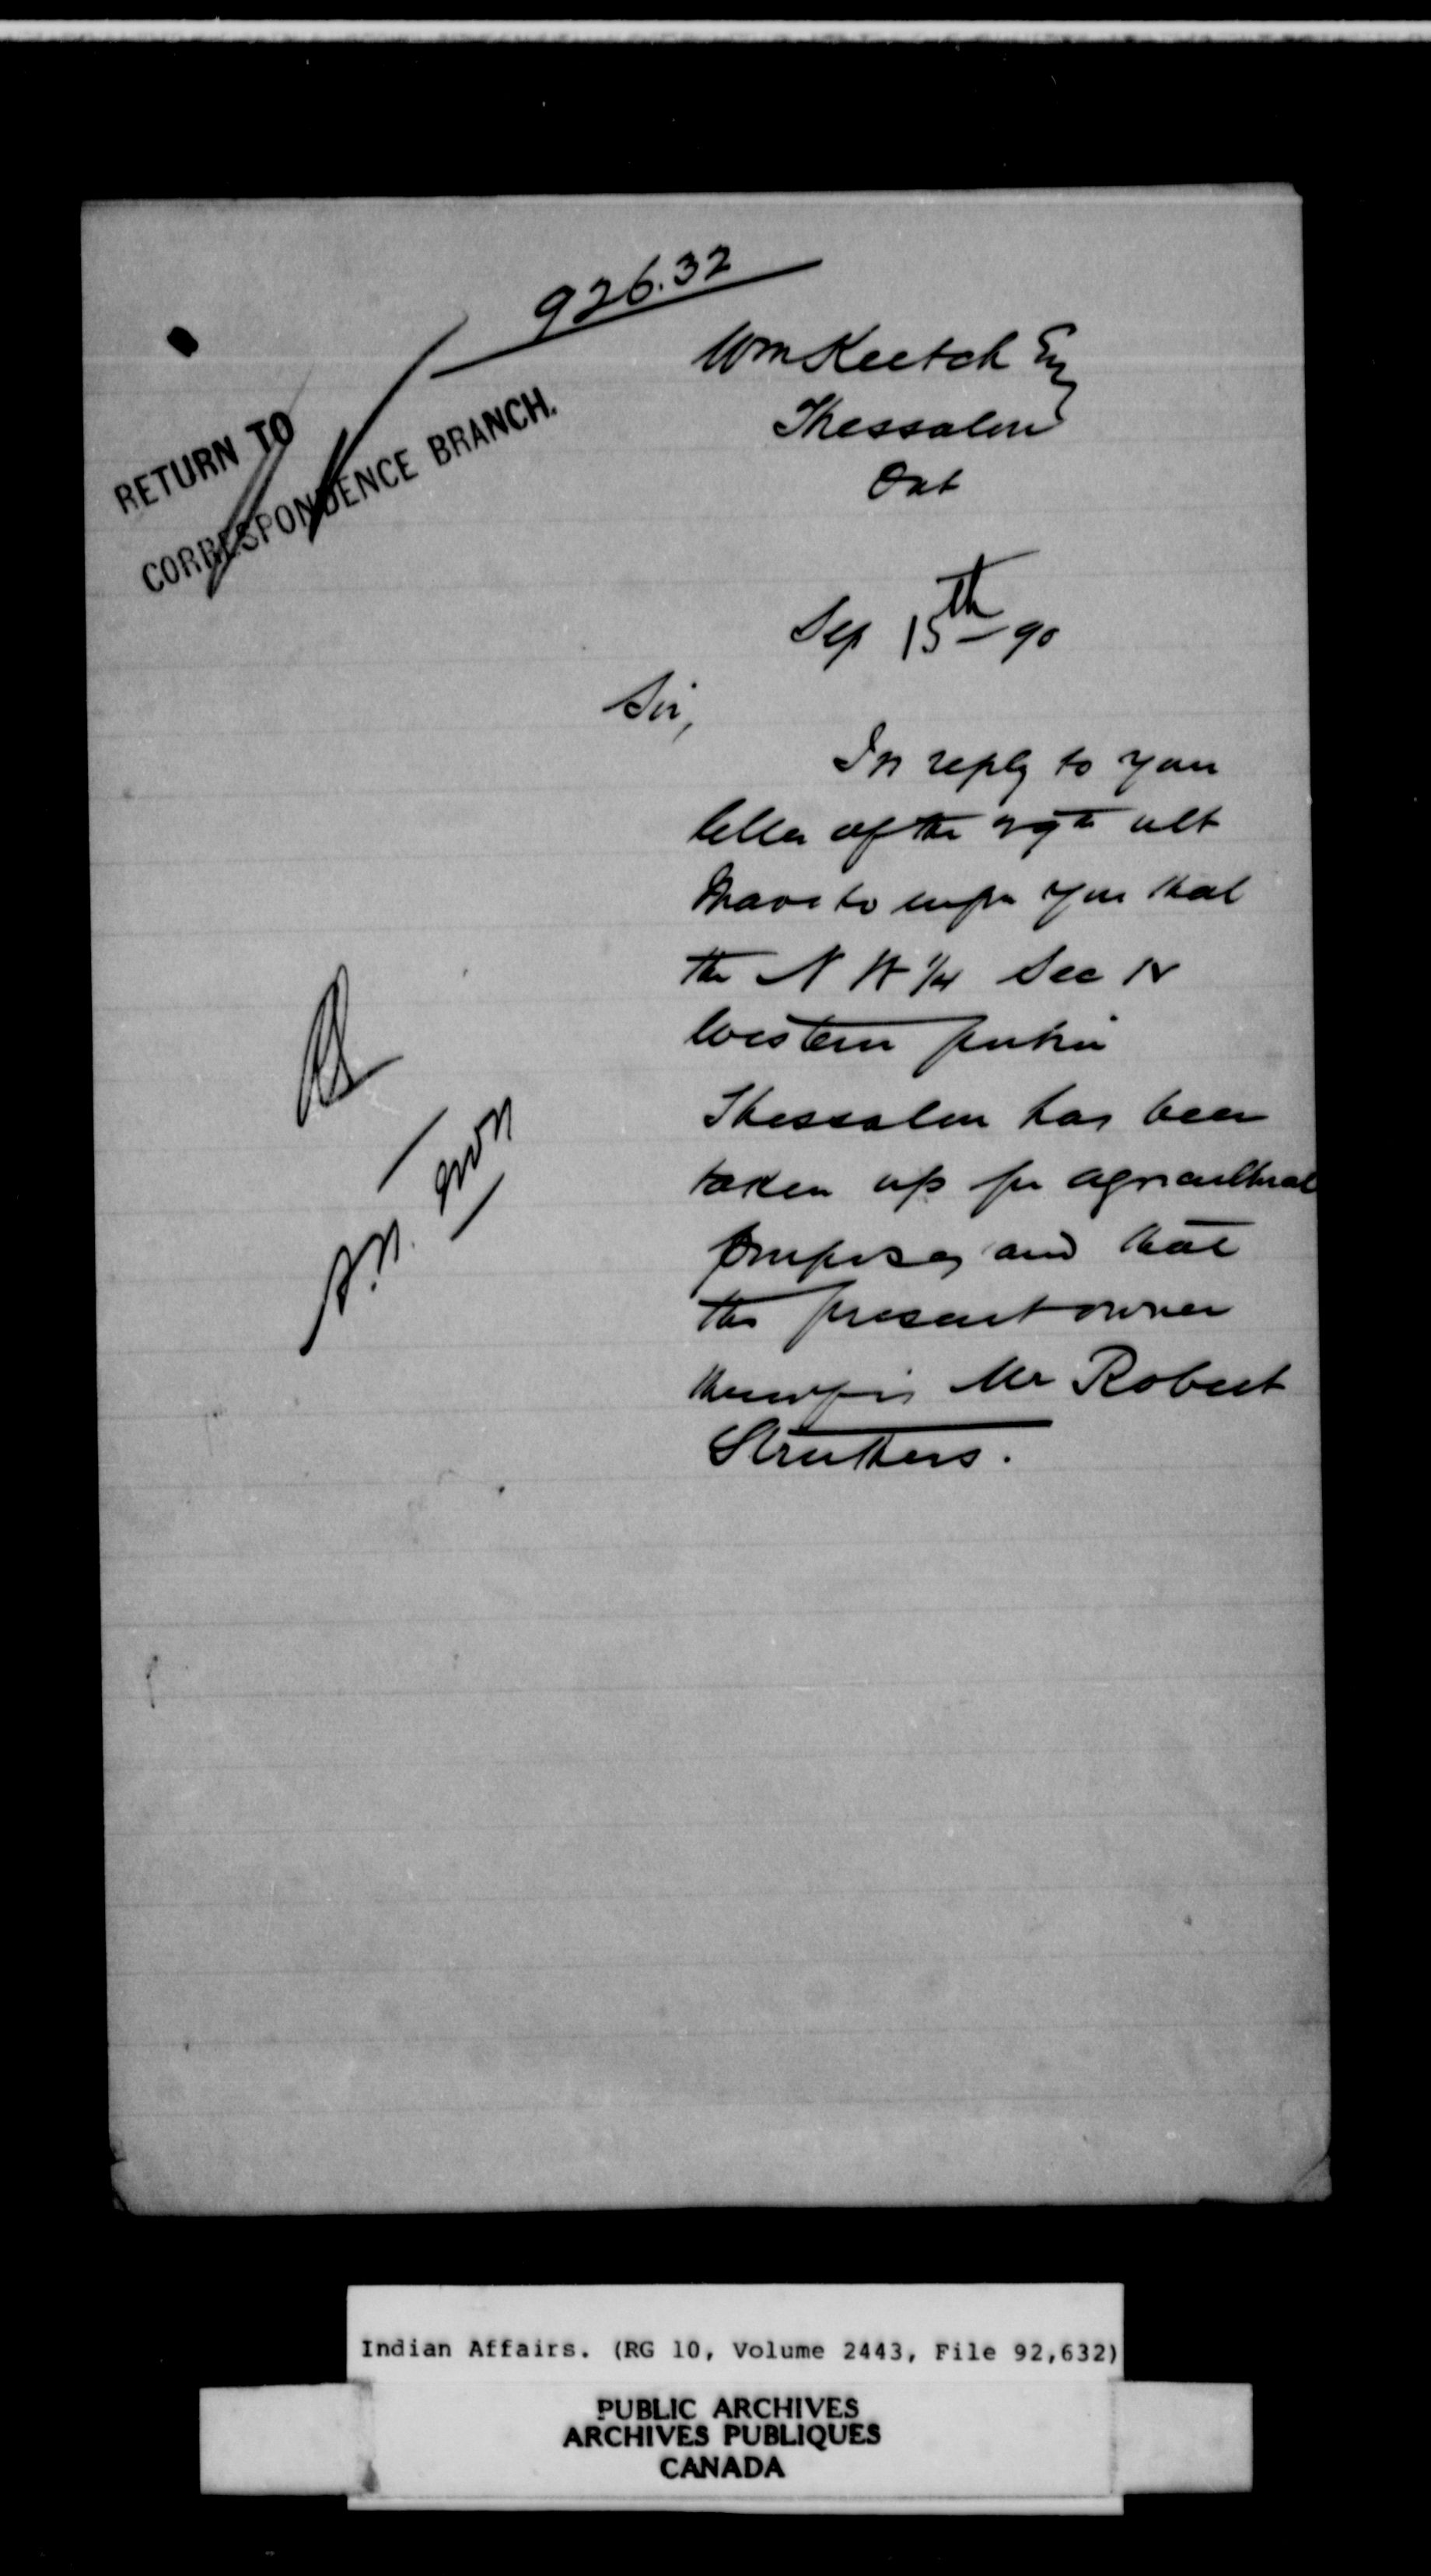 926.32
RETURN TO
CORRESPONDENCE BRANCH.
Wm Keetch Esq
Thessalon
Ont
Sep 15th 90
Sir,
In reply to your
letter of the 29th ult
have to infm you that
the N W 1/4 Sec 12
Western portion
Thessalon has been
taken up for agricultural
purposes and that
the present owner
thereof is Mr Robert
Struthers.
Indian Affairs. (RG 10, Volume 2443, File 92,632)
PUBLIC ARCHIVES
ARCHIVES PUBLIQUES
CANADA